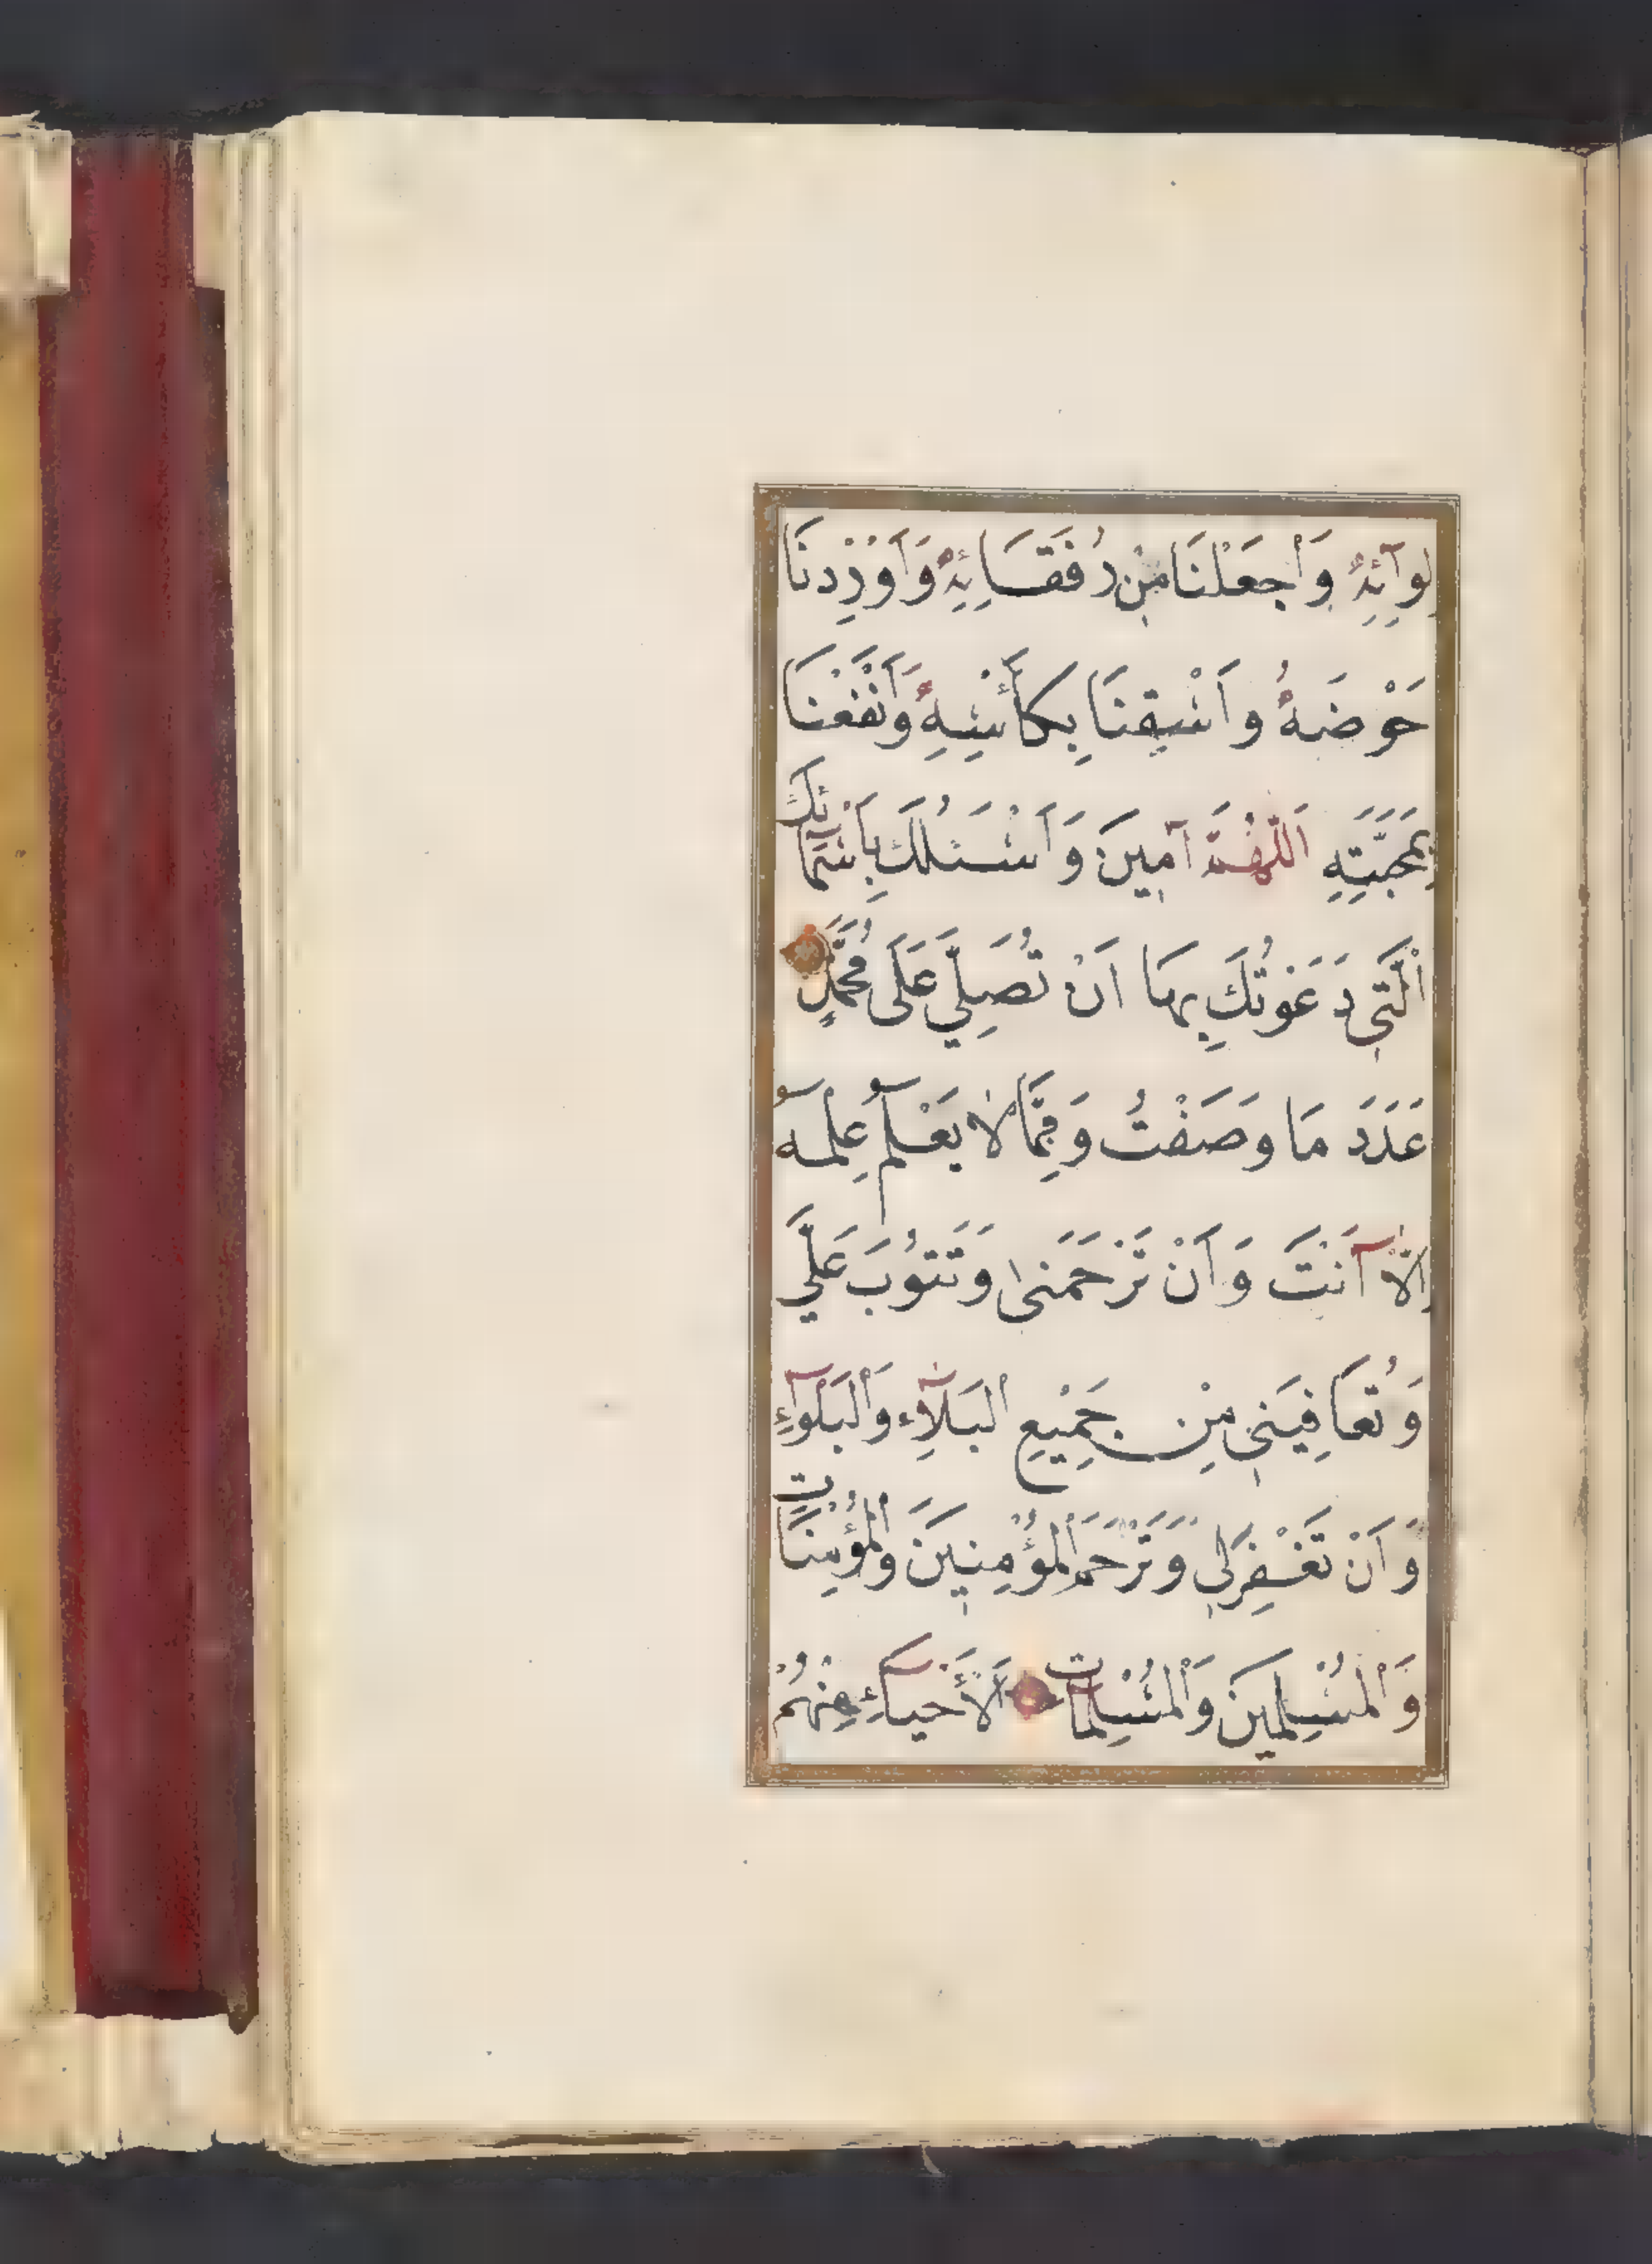 لِوَآئِهِ وَاجْعَلْنَا مِنْ رُفَقَائِهِ وَاَوْرِدْنَا
حَوْضَهُ وَاَسْقِنَا بِكَأْسِهِ وَانْفَعْنَا
بِمَحَبَّتِهِ اَللّٰهُمَّ آمِينَ وَاَسْئَلُكَ بِاَسْمَائِكَ
الَّتِى دَعَوْتُكَ بِهَا اَنْ تُصَلِّيَ عَلَى مُحَمَّدٍ
عَدَدَ مَا وَصَفْتُ وَمِمَّا لَا يَعْلَمُ عِلْمَهُ
اِلَّآ اَنْتَ وَاَنْ تَرْحَمَنِى وَتَتُوبَ عَلَيَّ
وَتُعَافِيَنِى مِنْ جَمِيْعِ الْبَلَآءِ وَالْبَلْوَآءِ
وَاَنْ تَغْفِرَلِى وَتَرْحَمَ الْمُؤْمِنِينَ وَالْمُؤْمِنَاتِ
وَالْمُسْلِمِينَ وَالْمُسْلِمَاتِ اَلْأَحْيَآءِ مِنْهُمْ